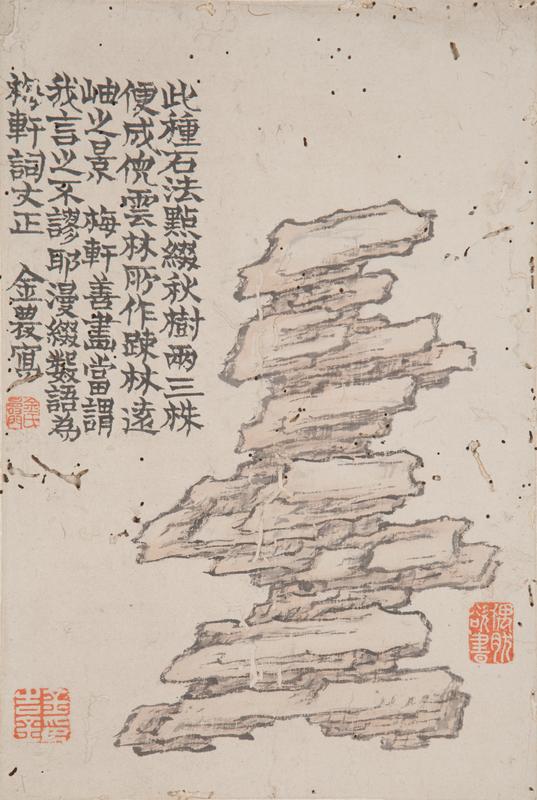 此種石法點綴秋樹兩三株
便成倪雲林所作疎林遠
岫之景 梅軒善畫當謂
我言之不謬耶漫綴數語為
軒詞丈正 金農寫
偶然
欲書